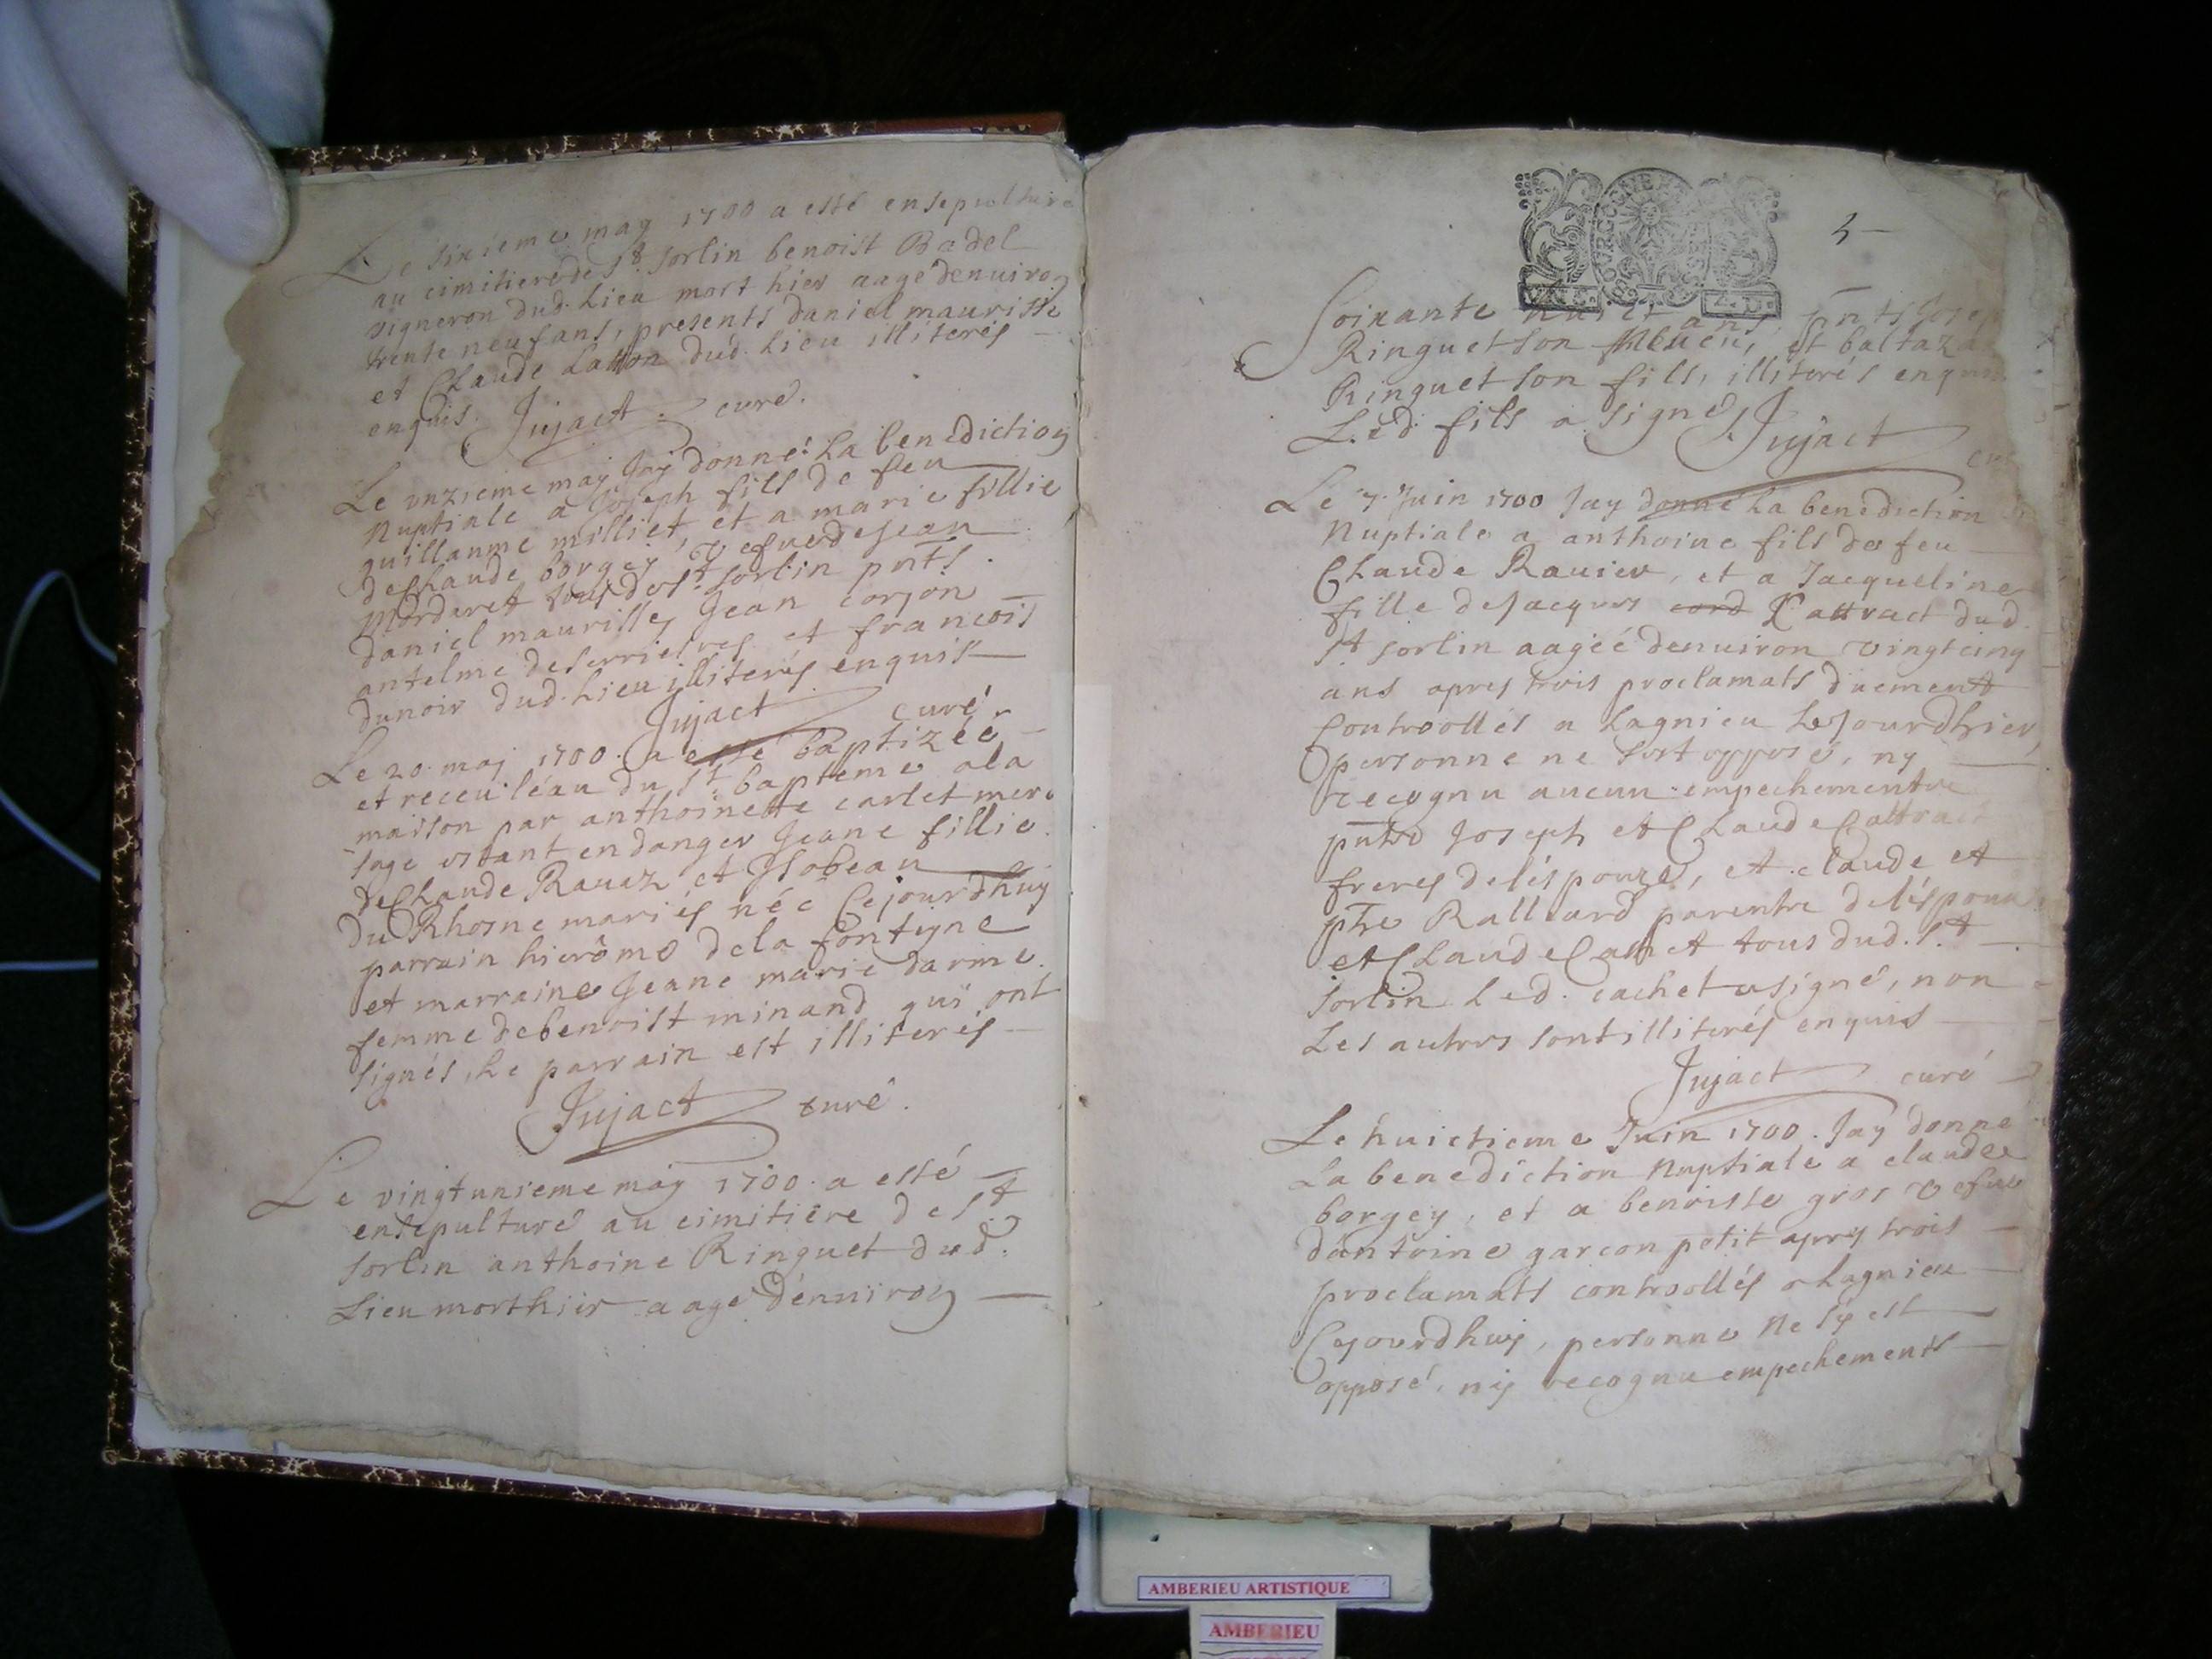 Le sixieme may 1700 a esté ensepulturé
au cimitiere de St sorlin benoist Badel
vigneron dud. Lieu mort hier aagé denuiron
trente neuf ans, presents daniel maurisse
et Claude dud. Lieu illiterés
enquis. Jujact curé.
Le vnzieme may Jay donné La benediction
Nuptiale a Joseph fils de feu
guillaume milliet, et a marie fillie
de Claude borgey vefue de Jean
Mordaret tous de St sorlin pnts.
daniel maurisse, Jean corjon
antelme deserrieres et francois
dunoir dud. Lieu illiterés enquis
Jujact curé.
Le 20. may 1700. a esté baptizée
et receu léau du St. bapteme a la
maison par anthoinette carlet mere
sage estant en danger Jeane fillie
de Claude Rauaz et Isabeau
du Rhosne mariés née Cejourdhuy
parrain hierôme de la fontigne
et marraine Jeane marie darme
femme de benoist minand qui ont
signés, Le parrain est illiterés
Jujact curé.
Le vingt unieme may 1700. a esté
ensepulturé au cimitiere de St
sorlin anthoine Ringuet dud.
Lieu mort hier aagé dénuiron
5
BOURGOGNE
Soixante huict ans, pnts
Ringuet son Neueu, et baltazar
Ringuet son fils, illiterés enquis
Led. fils a signé, Jujact
Le 7. Juin 1700 Jay donné La benediction
Nuptiale a anthoine fils de feu
Claude Rauier, et a Jacqueline
fille de Jacques cord Cattract dud.
St sorlin aagéé denuiron vingt cinq
ans apres trois proclamats duement
Controollés a Lagnieu Lejourdhier,
personne ne sest opposé, ny
recognu aucun empechement
Joseph et Claude Cattract
freres de léspouze, et claude et
Ralliard parentre de léspoux
et Claude Cachet tous dud. St.
sorlin Led. cachet a signé, non
Les autres sont illiterés enquis
Jujact curé
Le huictieme Juin 1700. Jay donné
La benediction Nuptiale a claude
borgey, et a benoiste gros vefue
dantoine garcon petit apres trois
proclamats controollés a Lagnieu
Cejourdhuy, personne ne sy est
opposé, ny recognu empechements
AMBERIEU ARTISTIQUE
AMBERIEU